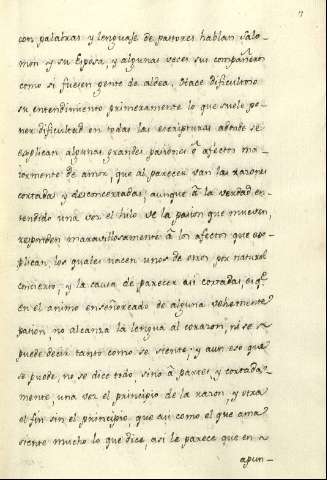 7
con palabras y lenguaje de pastores hablan Salo-
mon y su Esposa, y algunas veces sus compañeros
como si fuesen gente de aldea. Hace dificultoso
su entendimiento primeramente lo que suele po-
ner dificultad en todas las escripturas adonde se
explican algunas grandes pasiones ò afectos ma-
iormente de amor, que al parecer van las razones
cortadas y desconcertadas; aunque à la verdad en-
tendido una vez el hilo de la pasion que mueven,
responden maravillosamente à los afectos que ex-
plican, los quales nacen unos de otros por natural
concierto, y la causa de parecer asi cortadas, es q.
en el animo enseñoreado de alguna vehemente
pasion, no alcanza la lengua al corazon, ni se
puede decir tanto como se siente; y aun eso que
se puede, no se dice todo, sino à partes, y cortada-
mente, una vez el principio de la razon, y otra
el fin sin el principio, que asi como el que ama
siente mucho lo que dice, asi le parece que en
apun-